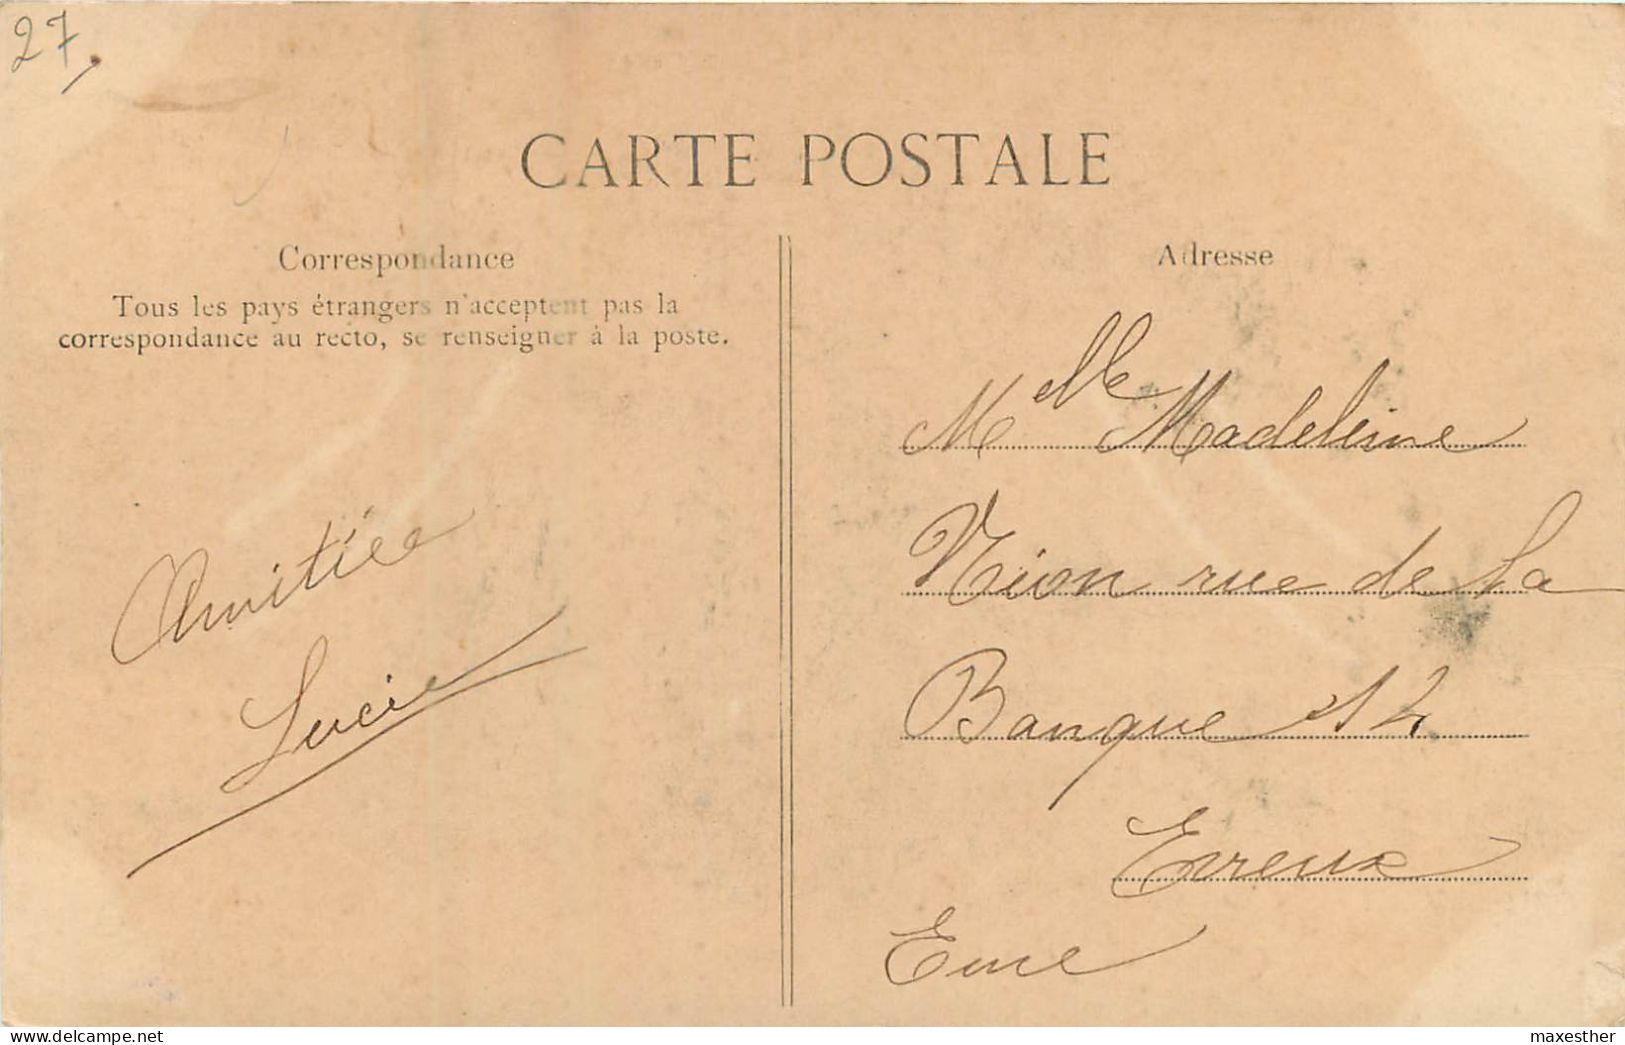 27
CARTE POSTALE
Correspondance
Tous les pays étrangers n'acceptent pas la
correspondance au recto, se renseigner à la poste.
Amitiée
Lucie
Adresse
Melle Madeleine
Vion rue de la
Banque 12
Evreux
Eure
delcampe.net
maxesther